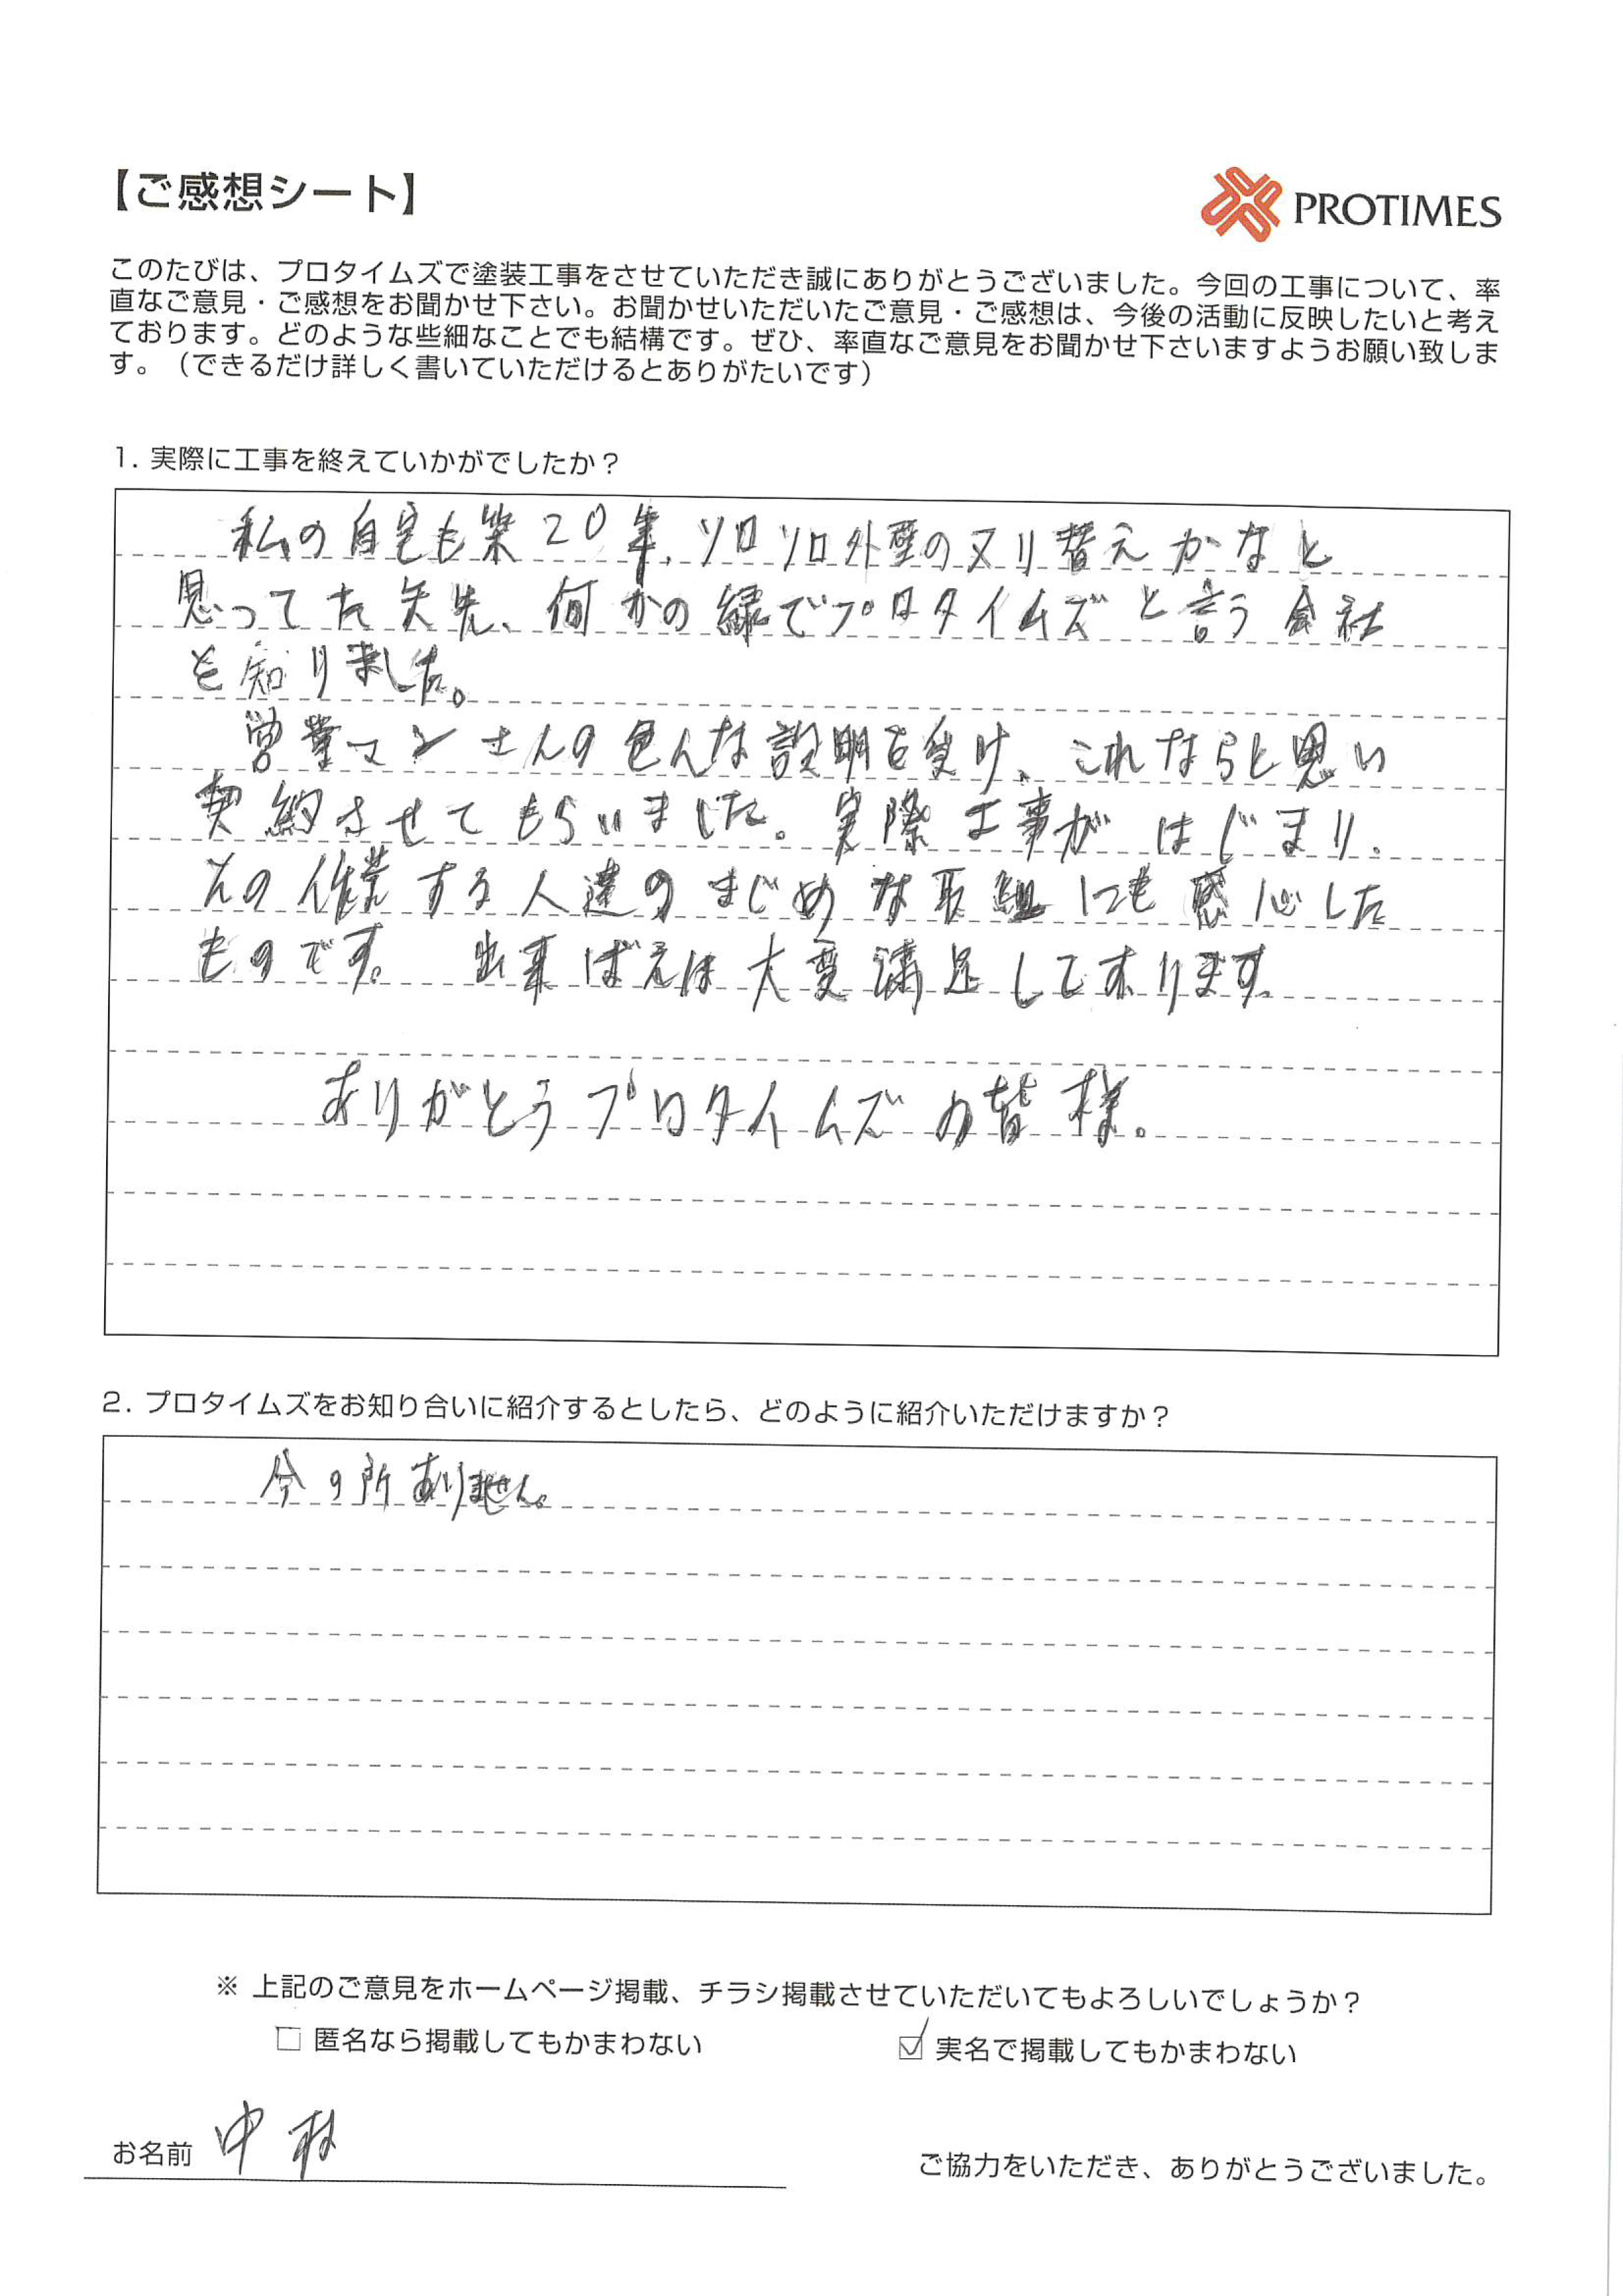 【ご感想シート】
PROTIMES
このたびは、プロタイムズで塗装工事をさせていただき誠にありがとうございました。今回の工事について、率
直なご意見・ご感想をお聞かせ下さい。お聞かせいただいたご意見・ご感想は、今後の活動に反映したいと考え
ております。どのような些細なことでも結構です。ぜひ、率直なご意見をお聞かせ下さいますようお願い致しま
す。（できるだけ詳しく書いていただけるとありがたいです）
1. 実際に工事を終えていかがでしたか？
私の自宅も築20年、ソロソロ外壁のヌリ替えかなと
思ってた矢先、何かの縁でプロタイムズと言う会社
を知りました。
営業マンさんの色んな説明を受け、これならと思い
契約させてもらいました。実際工事がはじまり、
その作業する人達のまじめな取組にも感心した
ものです。出来ばえは大変満足しております。
ありがとうプロタイムズの皆様。
2. プロタイムズをお知り合いに紹介するとしたら、どのように紹介いただけますか？
今の所ありません。
※ 上記のご意見をホームページ掲載、チラシ掲載させていただいてもよろしいでしょうか？
□ 匿名なら掲載してもかまわない ☑ 実名で掲載してもかまわない
お名前 中村
ご協力をいただき、ありがとうございました。